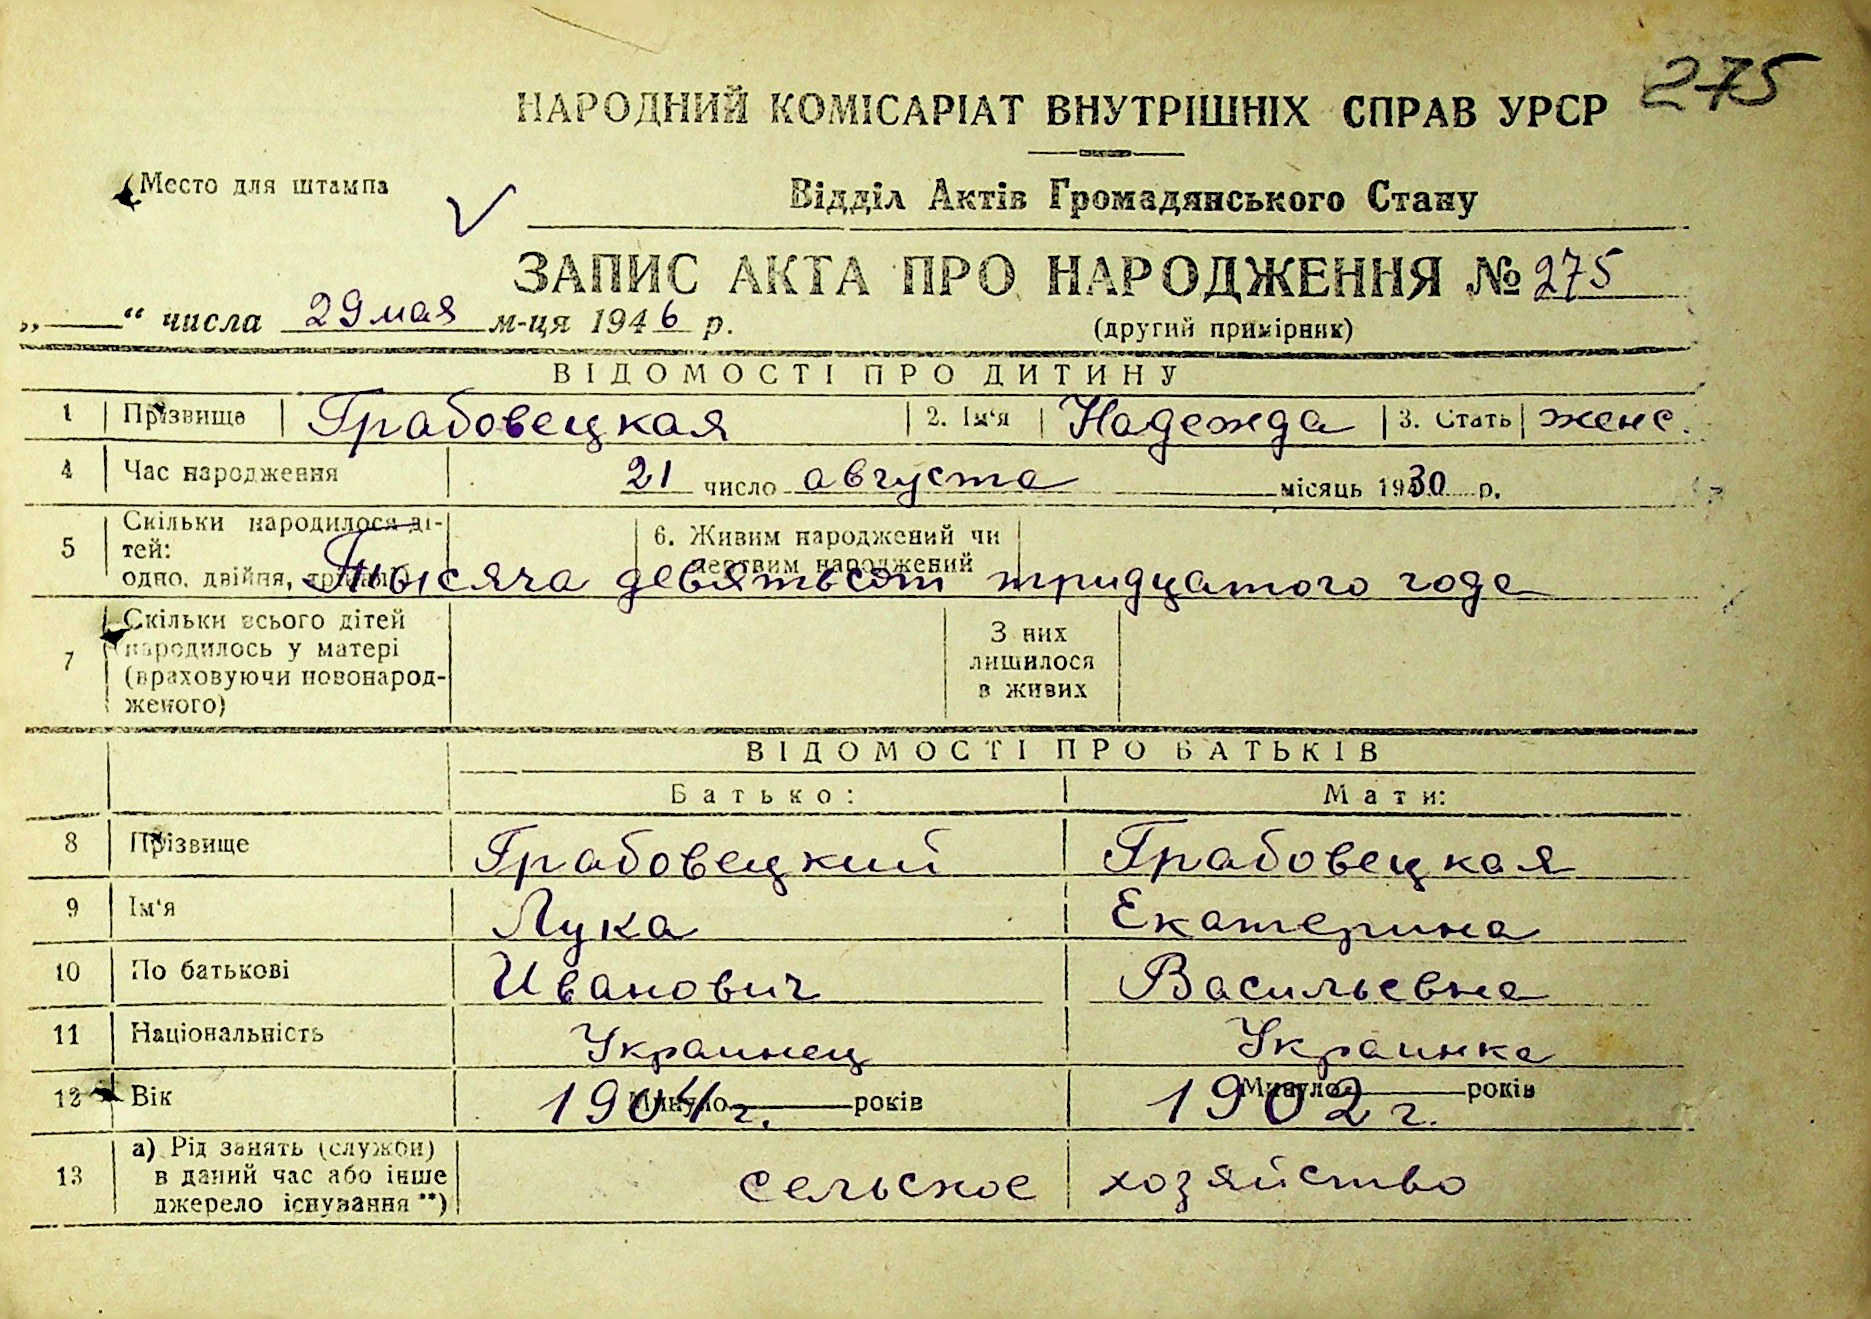 275
НАРОДНИЙ КОМІСАРІАТ ВНУТРІШНІХ СПРАВ УРСР
Место для штампа
Відділ Актів Громадянського Стану
ЗАПИС АКТА ПРО НАРОДЖЕННЯ № 275
„ “ числа 29 мая м-ця 1946 р. (другий примірник)
ВІДОМОСТІ ПРО ДИТИНУ
1 Прізвище Грабовецкая 2. Ім‘я Надежда 3. Стать женс.
4 Час народження 21 число августа місяць 1930 р.
5 Скільки народилося дітей: одно, двійня, 6. Живим народжений чи мертвим народжений
Тысяча девятьсот тридцатого года
7 Скільки всього дітей народилось у матері (враховуючи новонародженого) З них лишилося в живих
ВІДОМОСТІ ПРО БАТЬКІВ
Батько: Мати:
8 Прізвище Грабовецкий Грабовецкая
9 Ім‘я Лука Екатерина
10 По батькові Иванович Васильевна
11 Національність Украинец Украинка
12 Вік Минуло років 1904 г. Минуло років 1902 г.
13 а) Рід занять (служби) в даний час або інше джерело існування **) сельское хозяйство